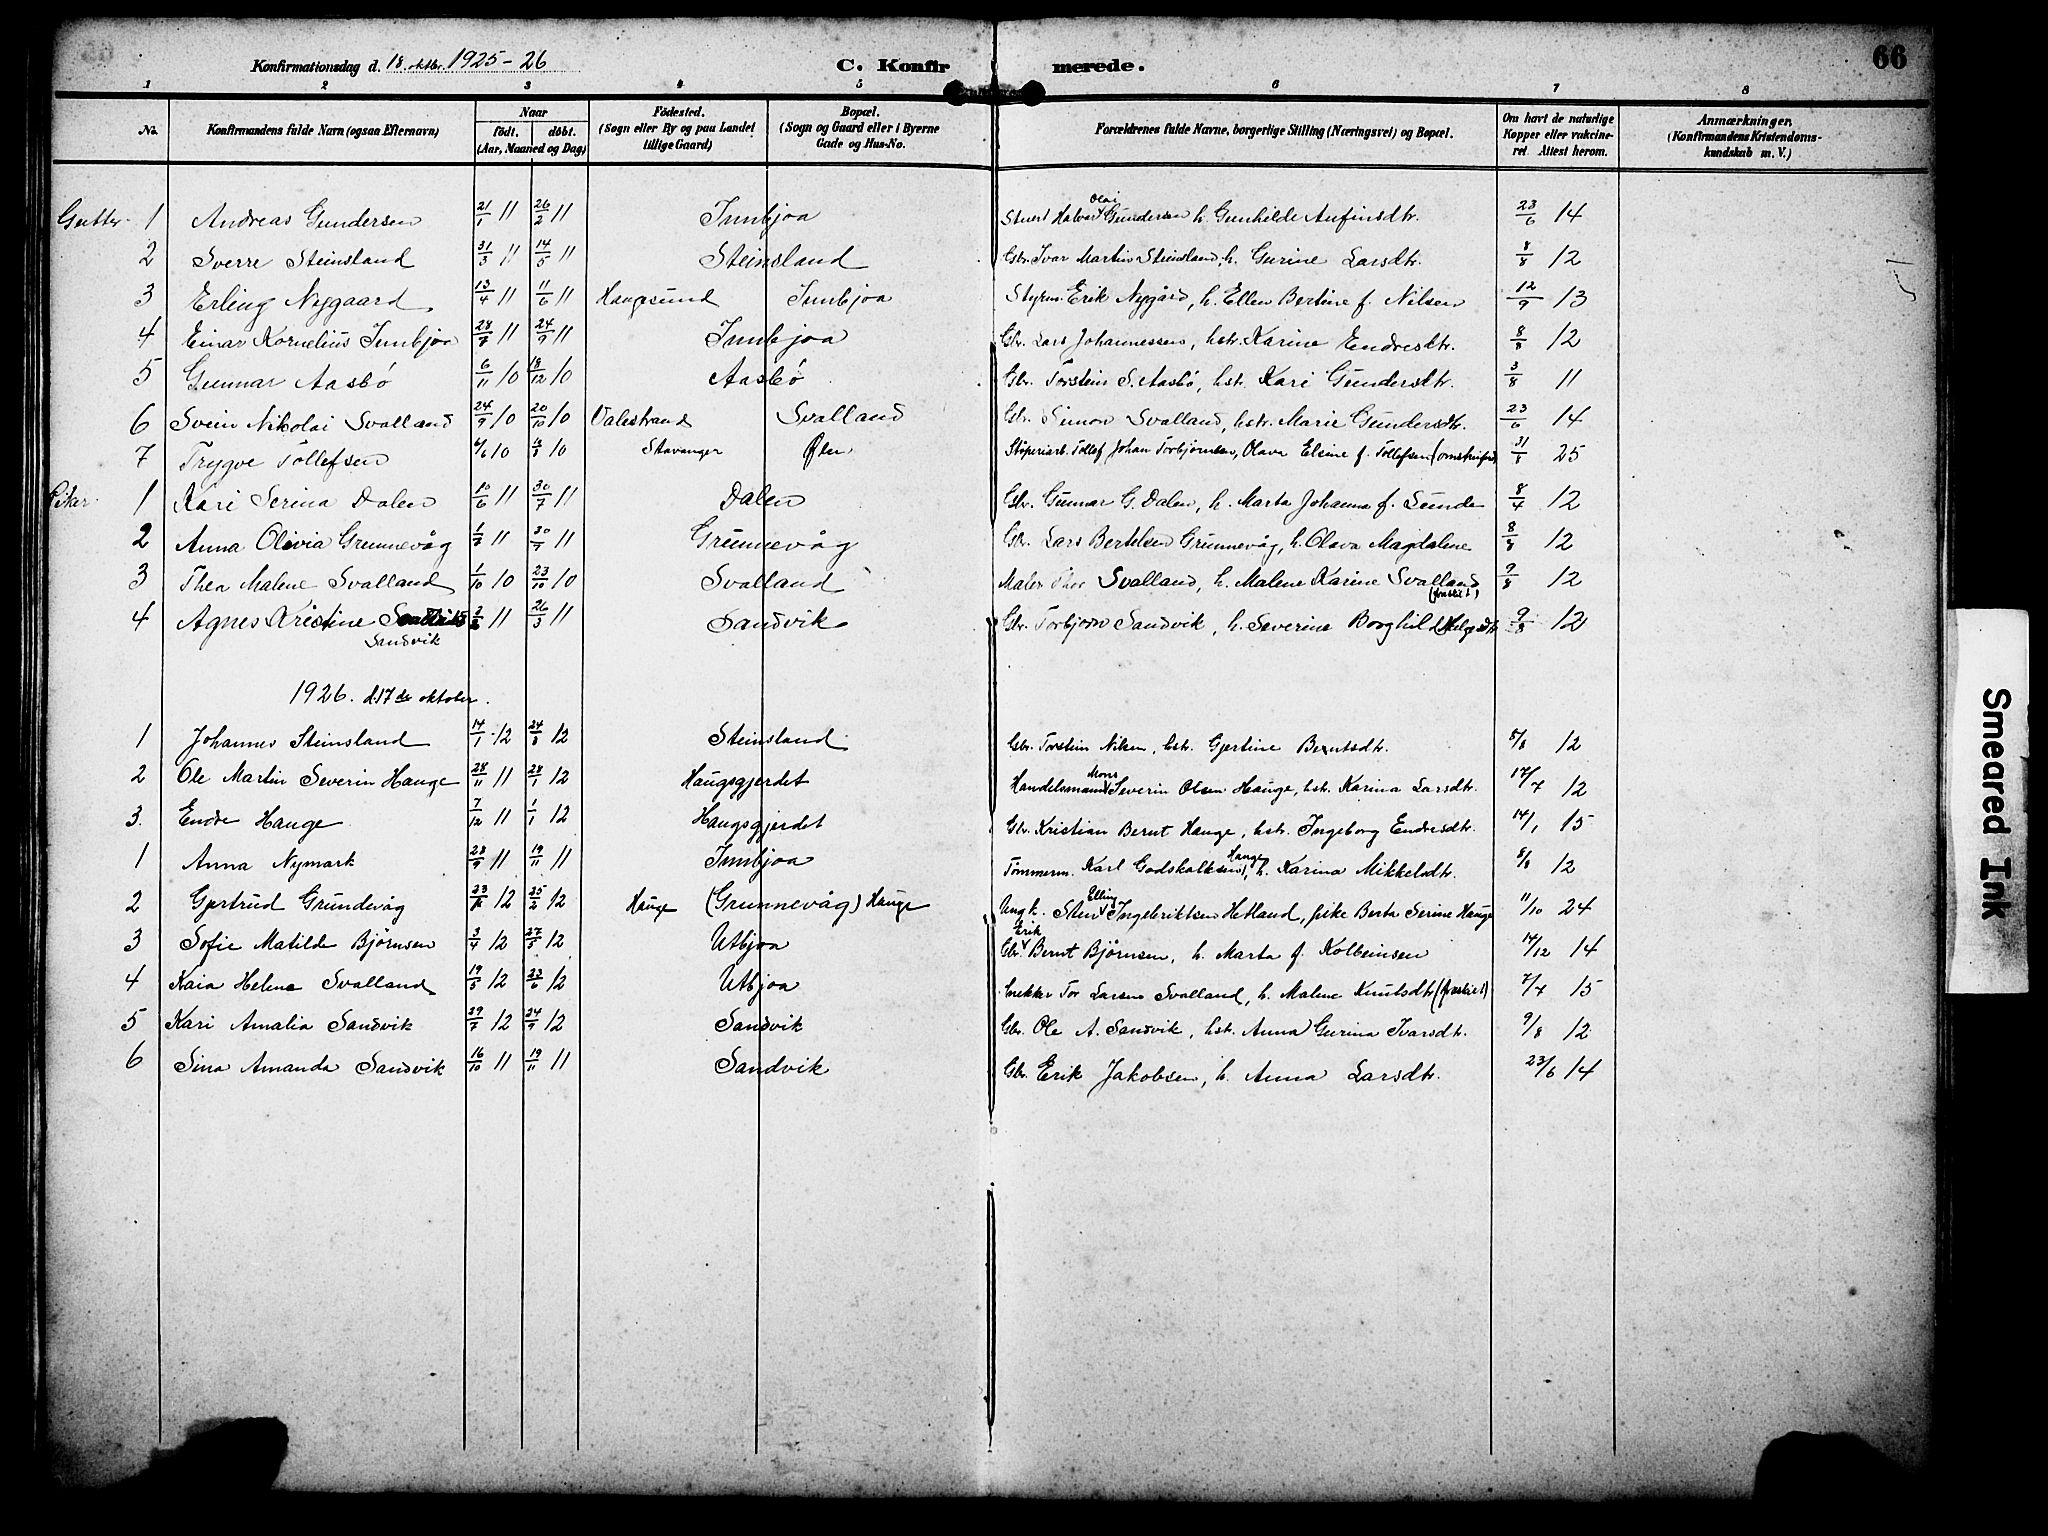 66
Konfirmationsdag d. 18. oktbr. 1925-26 C. Konfirmerede.
1 2 3 4 5 6 7 8
No. Konfirmandens fulde Navn (ogsaa Efternavn) Naar født. døbt. (Aar, Maaned og Dag) Fødested. (Sogn eller By og paa Landet tillige Gaard) Bopæl. (Sogn og Gaard eller i Byerne Gade og Hus-No. Forældrenes fulde Navne, borgerlige Stilling (Næringsvei) og Bopæl. Om havt de naturlige Kopper eller vakcineret Attest herom. Anmærkninger. (Konfirmandens Kristendomskundskab m. V.)
Gutter. 1 Andreas Gundersen 21/1 11 26/2 11 Innbjoa Stuert Halvar Olai Gundersen h. Gunhilde Anfinsdtr. 23/6 14
2 Sverre Steinsland 31/3 11 14/5 11 Steinsland Gbr. Ivar Martin Steinsland, h. Gurine Larsdtr. 8/8 12
3 Erling Nygaard 13/4 11 11/6 11 Haugesund Innbjoa Styrm. Erik Nygård, h. Ellen Bertine f. Nilsen 12/9 13
4 Einar Kornelius Innbjoa 28/7 11 24/9 11 Innbjoa Gbr. Lars Johannessen, hstr. Karine Endresdtr. 8/8 12
5 Gunnar Aasbø 6/11 10 18/12 10 Aasbø Gbr. Torstein S. Aasbø, hst. Kari Gundersdtr. 3/8 11
6 Svein Nikolai Svalland 24/9 10 20/10 10 Valestrand Svalland Gbr. Simon Svalland, hstr. Marie Gundersdtr. 23/6 14
7 Trygve Tollefsen 6/6 10 10 Stavanger Ølen Støperiarb. Tollef Johan Torbjørnsen, Olava Elsine f. Tollefsen 31/8 25
Piker. 1 Kari Serina Dalen 10/6 11 30/7 11 Dalen Gbr. Gunnar G. Dalen, h. Marta Johanna f. Sunde 8/4 12
2 Anna Olivia Grunnevåg 11 30/7 11 Grunnevåg Gbr. Lars Bertelsen Grunnevåg, h. Olava Magdalene 8/8 12
3 Thea Malene Svalland 1/10 10 23/10 10 Svalland Maler Thor Svalland, h. Malene Karine Svalland (fraskilt) 9/8 12
4 Agnes Kristine Sandvik 11 26/3 11 Sandvik Gbr. Torbjørn Sandvik, h. Severine Borghild Helgesdtr 9/8 12
1926. d. 17de oktober.
1 Johannes Steinsland 14/1 12 24/8 12 Steinsland Gbr. Torstein Nilsen, hst. Gjertine Berntsdtr. 8/8 12
2 Ole Martin Severin Hauge 28/11 11 28/1 12 Haugsgjerdet Handelsmann Mons Severin Olsen Hauge, hst. Karina Larsdtr. 17/7 12
3. Endre Hauge 7/12 11 1/1 12 Haugsgjerdet Gbr. Kristian Bernt Hauge, hstr. Ingeborg Endresdtr. 14/1 15
1 Anna Nymark 28/9 11 19/11 11 Innbjoa Tømmerm. Karl Godskalksen Hauge, h. Karina Mikkelsdtr. 8/8 12
2 Gjertrud Grundevåg 12 25/2 12 Hauge (Grunnevåg) Hauge Ungk. Sten Elling Ingebriktsen Hetland, pike Berta Serine Hauge 11/10 24
3 Sofie Matilde Bjørnsen 3/4 12 27/5 12 Utbjoa Gbr. Erik Bernt Bjørnsen, h. Marta f. Kolbeinsen 14/12 14
4 Kaia Helene Svalland 19/5 12 23/6 12 Utbjoa Snekker Tor Larsen Svalland, h. Malene Knutsdtr (fraskilt) 7/7 15
5 Kari Amalia Sandvik 29/7 12 24/9 12 Sandvik Gbr. Ole A. Sandvik, hst. Anna Gurina Ivarsdtr. 9/8 12
6 Sina Amanda Sandvik 16/10 11 19/11 11 Sandvik Gbr. Erik Jakobsen, h. Anna Larsdtr. 23/6 14
Smeared Ink